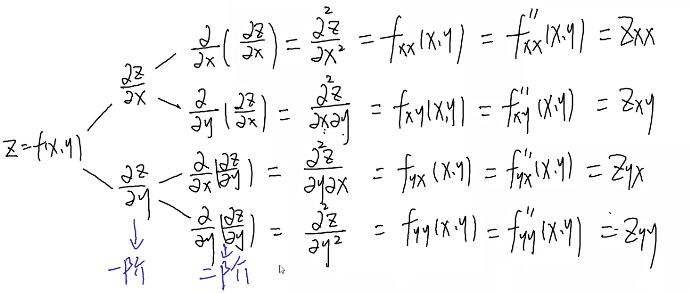 ∂/∂x (∂z/∂x) = ∂²z/∂x² = fxx(x,y) = f''xx(x,y) = Zxx
∂z/∂x
∂/∂y (∂z/∂x) = ∂²z/∂x∂y = fxy(x,y) = f''xy(x,y) = Zxy
z=f(x,y)
∂/∂x (∂z/∂y) = ∂²z/∂y∂x = fyx(x,y) = f''yx(x,y) = Zyx
∂z/∂y
∂/∂y (∂z/∂y) = ∂²z/∂y² = fyy(x,y) = f''yy(x,y) = Zyy
一阶 二阶